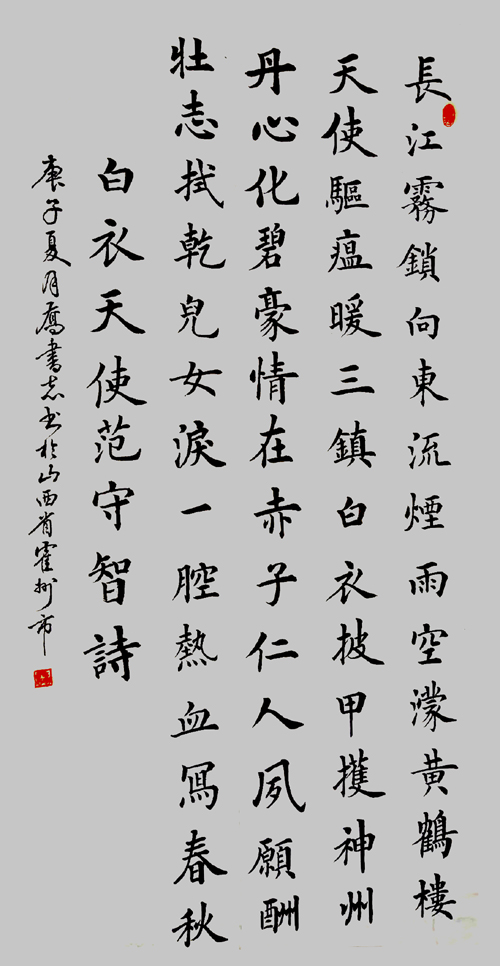 長江霧鎖向東流煙雨空濛黄鶴樓
天使驅瘟暖三鎮白衣披甲擭神州
丹心化碧豪情在赤子仁人夙願酬
壮志拭乾兒女淚一腔熱血冩春秋
白衣天使范守智詩
庚子夏月書志书於山西省霍州市